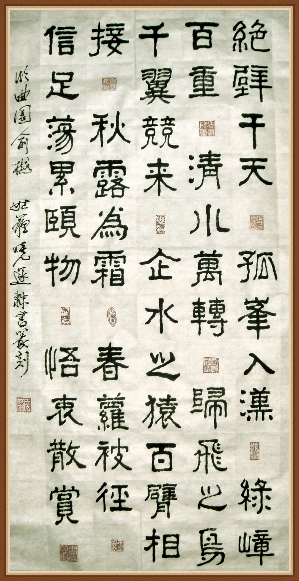 絕壁干天 孤峯入漢 綠嶂
百重 清川萬轉 歸飛之鳥
千翼競来 企水之猿百臂相
接 秋露為霜 春蘿被徑
信足蕩累頤物 悟衷散賞
曲園 隸書篆刻